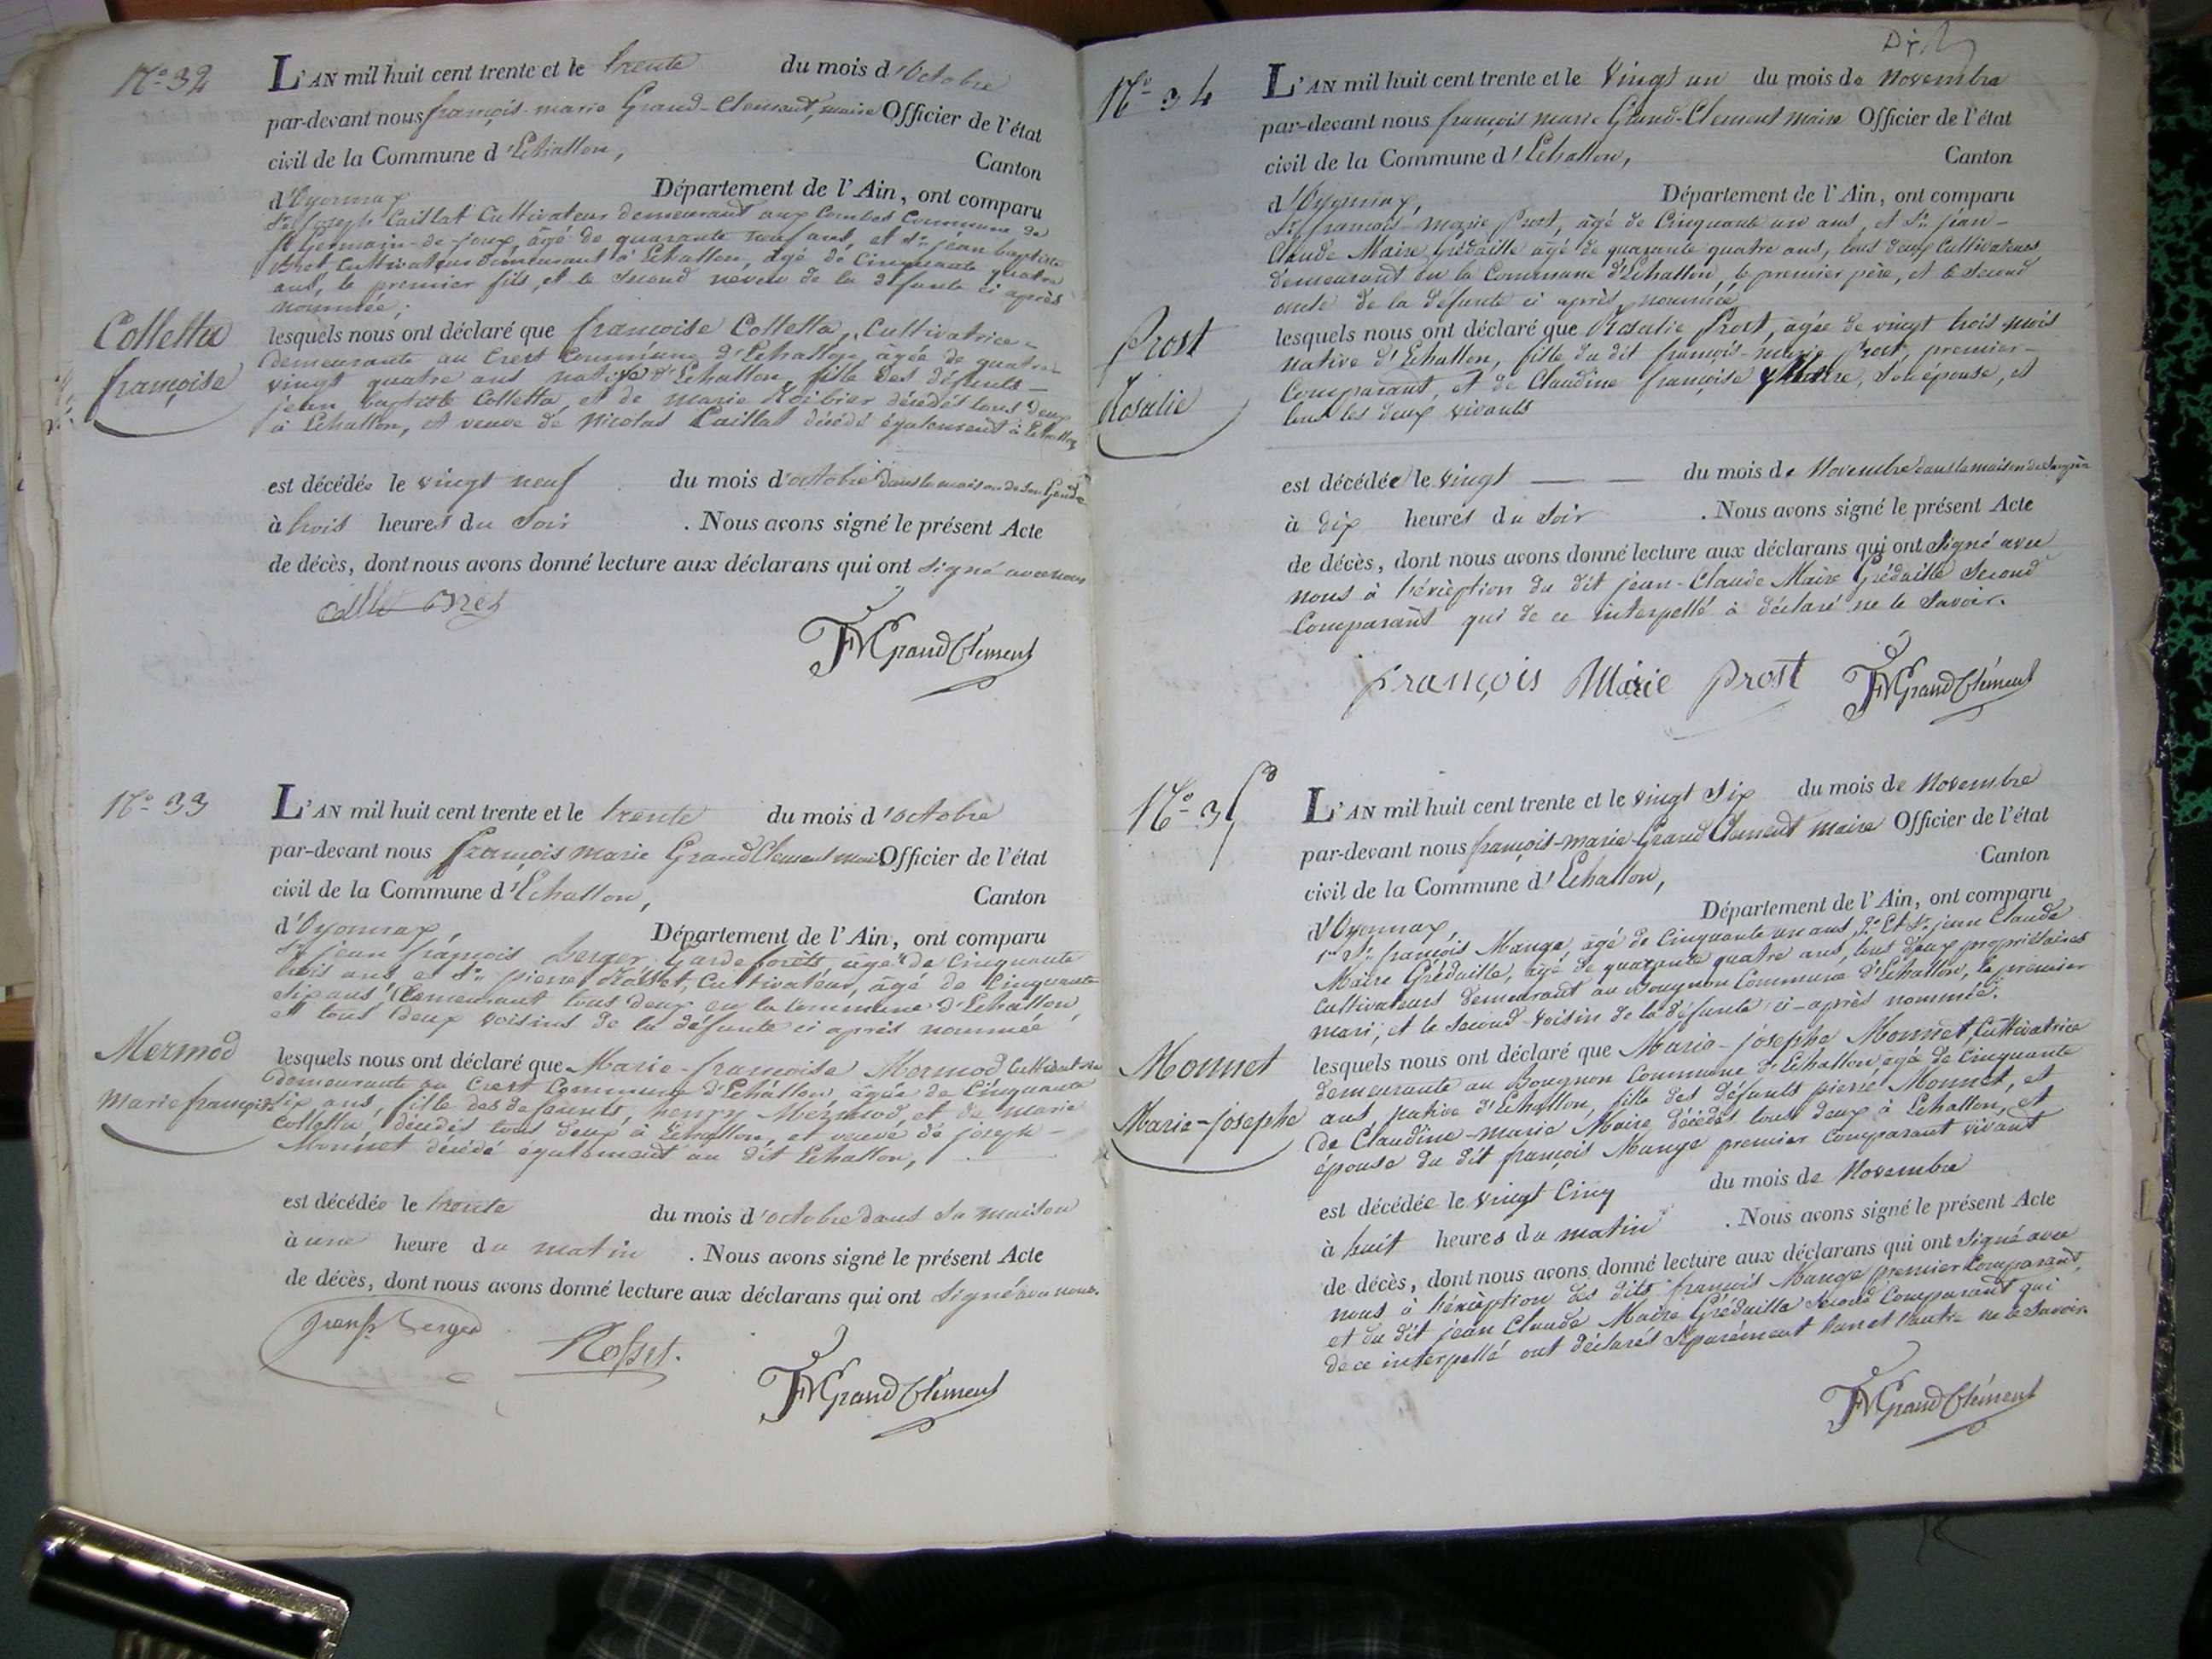 N° 32
L'AN mil huit cent trente et le trente du mois d'Octobre
par-devant nous françois-marie Grand-Clement, maire Officier de l'état
civil de la Commune d'Echallon, Canton
d'Oyonnax Département de l'Ain, ont comparu
Sr. joseph Caillat Cultivateur demeurant aux Combes Commune de
St Germain-de-joux, âgé de quarante neuf ans, et Sr. jean baptiste
Cultivateur demeurant à Echallon, âgé de Cinquante quatre
ans, le premier fils, et le second neveu de la défunte ci après
nommée;
Colletta
françoise
lesquels nous ont déclaré que françoise Colletta, Cultivatrice
demeurante au Crest Commune d'Echallon, âgée de quatre
vingt quatre ans native d'Echallon, fille des défunts
jean baptiste Colletta, et de marie décédés tous deux
à Echallon, et veuve de Nicolas Caillat décédé également à Echallon
est décédée le vingt neuf du mois d'octobre dans la maison de son Gendre
à trois heures du Soir . Nous avons signé le présent Acte
de décès, dont nous avons donné lecture aux déclarans qui ont signé avec nous
FMGrandClément
N° 33
L'AN mil huit cent trente et le trente du mois d'octobre
par-devant nous françois marie Grand Clement maire Officier de l'état
civil de la Commune d'Echallon, Canton
d'Oyonnax, Département de l'Ain, ont comparu
Sr. jean françois Berger Garde forêts, âgé de Cinquante
trois ans, et Sr. pierre Rosset, Cultivateur, âgé de Cinquante
six ans, demeurant tous deux en la Commune d'Echallon,
et tous deux voisins de la défunte ci après nommée
Mermod
Marie françoise
lesquels nous ont déclaré que Marie-françoise Mermod Cultivatrice
demeurante au Crest Commune d'Echallon, âgée de Cinquante
six ans, fille des defeunts, henry Mermod, et de Marie
Colletta, décédés tous deux à Echallon, et veuve de joseph-
Monnet décédé également au dit Echallon,
est décédée le trente du mois d'octobre dans sa maison
à une heure du matin . Nous avons signé le présent Acte
de décès, dont nous avons donné lecture aux déclarans qui ont signé avec nous.
Berger
Rosset.
FMGrandClément
N° 34
L'AN mil huit cent trente et le Vingt un du mois de Novembre
par-devant nous françois marie Grand-Clement maire Officier de l'état
civil de la Commune d'Echallon, Canton
d'Oyonnax, Département de l'Ain, ont comparu
Sr. françois-marie Prost, âgé de Cinquante un ans, et Sr. jean-
Claude Maire Grédaille âgé de quarante quatre ans, tous deux Cultivateurs
demeurant en la Commune d'Echallon, le premier père, et le Second
oncle de la défunte ci après nommée
Prost
Rosalie
lesquels nous ont déclaré que Rosalie Prost, âgée de vingt trois mois
native d'Echallon, fille du dit françois-marie Prost, premier-
Comparant, et de Claudine françoise Maire, son épouse, et
tous les deux vivants
est décédée le vingt du mois de Novembre dans la maison de son père
à dix heures du Soir . Nous avons signé le présent Acte
de décès, dont nous avons donné lecture aux déclarans qui ont Signé avec
nous à l'éxception du dit jean-Claude Maire Grédaille Second
Comparant qui de ce interpellé à déclaré ne le Savoir.
françois Marie prost
FMGrandClément
N° 35
L'AN mil huit cent trente et le vingt Six du mois de Novembre
par-devant nous françois-marie Grand Clement maire Officier de l'état
civil de la Commune d'Echallon, Canton
d'Oyonnax, Département de l'Ain, ont comparu
1er Sr. françois Mange, âgé de Cinquante un ans, 2° Et Sr. jean Claude
Maire Grédaille, âgé de quarante quatre ans, tous deux propriétaires
Cultivateurs demeurant au Bougnon Commune d'Echallon, le premier
mari, et le Second voisin de la défunte ci-après nommée.
Monnet
Marie-josephe
lesquels nous ont déclaré que Marie-josephe Monnet, Cultivatrice
demeurante au Bougnon Commune d'Echallon, âgé de Cinquante
ans native d'Echallon, fille des défunts pierre Monnet, et
de Claudine-marie Maire décédés tous deux à Echallon, et
épouse du dit françois Mange premier Comparant vivant
est décédée le vingt Cinq du mois de Novembre
à huit heures du matin . Nous avons signé le présent Acte
de décès, dont nous avons donné lecture aux déclarans qui ont Signé avec
nous à l'éxception des dits françois Mange premier Comparant,
et du dit jean Claude Maire Grédaille Second Comparant qui
de ce interpellé ont déclarés Séparément l'un et l'autre ne le Savoir
FMGrandClément